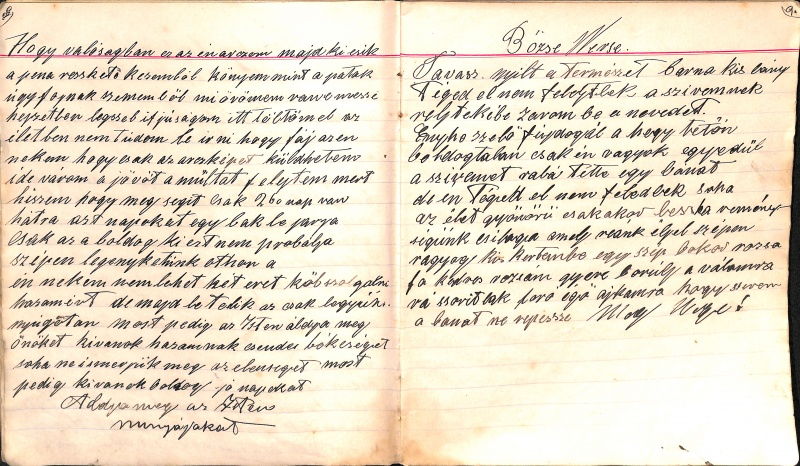 Hogy valóságban ez az én arczom majd ki esik
a pena resskető kezemből könyem mint a patak
úgy fojnak szememből mi örömem van
legszeb ifjúságom itt töltöm el az
életben nem tudom le irni hogy fáj azen
nekem hogy csak az arczképet küldhetem
ide várom a jövöt a múltat felejtem mert
hiszem hogy meg segit csak 260 nap van
hátra azt napokat egy bak le jarja
csak az a boldog ki ezt nem probálja
szépen legényketünk othon a
én nekem nem lehet hét évet
hazamért de majd le telik az csak legyünk
nyugotan most pedig az Isten áldja meg
önöket kivanok hazamnak csendes békeséget
soha ne ismerjük meg az elenséget most
pedig kivanok boldog jó napokat
Aldja meg az Isten
munjájokat
9.
Börse Werse.
Tavasz nyilt a természet barna kis lány
Téged el nem felejtlek a szivemnek
rejtekébe zarom be a nevedet.
Enyhe szelő fujdogál a hegy tetőn
boldogtalan csak én vagyok egyedül
a szivemet rabá tette egy bánat
de én Tégett el nem feledlek soha
az élet gyönörü csakakor ha remény
ségünk csilagja amely reánk éljel szépen
ragyog kis kertembe egy szép bokor rozsa
fa kedves rozsám gyere borúlj a válamra
ra szoritlak foró égő ajkamra hogy szivem
a banat ne repessze Vége!